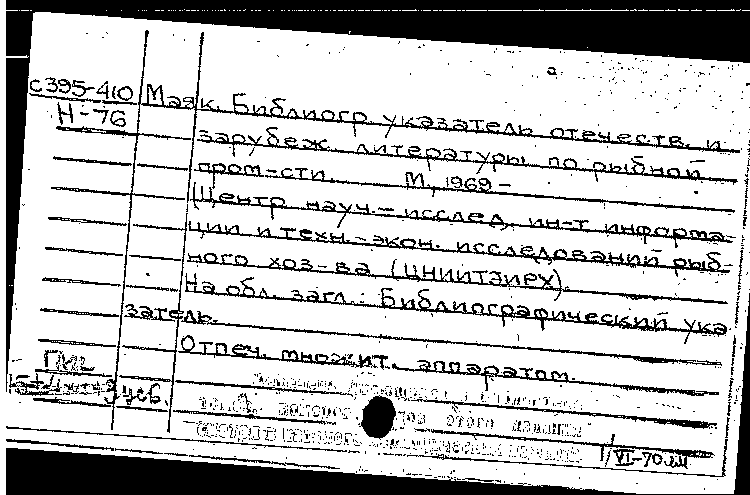 а
с395-410 Маяк. Библиогр. указатель отечеств. и
Н-76
зарубеж. литературы по рыбной
пром-сти. М., 1969-
(Центр. науч.-исслед. ин-т информа-
ции и техн.-экон. исследований рыб-
ного хоз-ва (ЦНИИТЭИРХ).
На обл. загл.: Библиографический ука
затель.
Отпеч. множит. аппаратом.
этого издания
1/VI-70